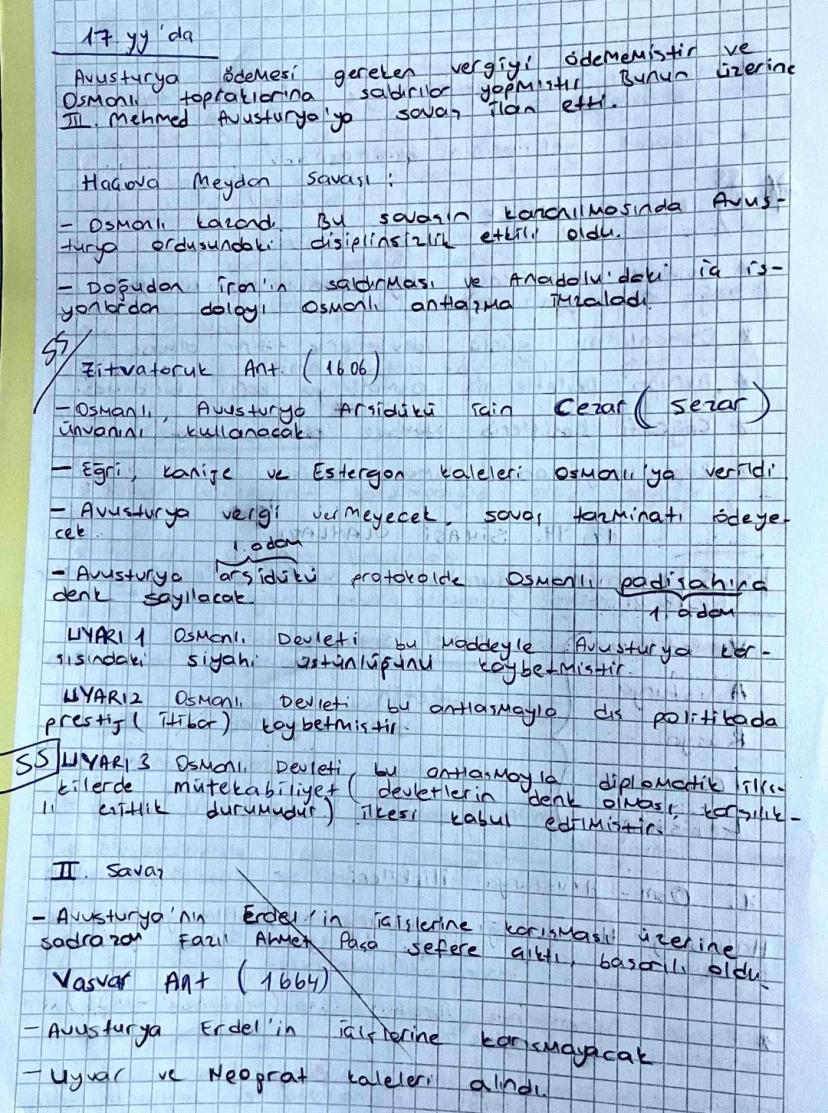 17 yy'da
Avusturya ödemesi gereken vergiyi ödememiştir ve
Osmanlı topraklarına saldırılar yapmıştır Bunun üzerine
III. Mehmed Avusturya'ya savaş ilan etti.
Haçova Meydan Savaşı :
- Osmanlı kazandı. Bu savaşın kazanılmasında Avus-
turya ordusundaki disiplinsizlik etkili oldu.
- Doğudan İran'ın saldırması ve Anadolu'daki iç is-
yanlardan dolayı Osmanlı antlaşma imzaladı.
SS
Zitvatoruk Ant. (1606)
- Osmanlı, Avusturya Arşidükü için Cezar (Sezar)
ünvanını kullanacak.
- Eğri, Kanije ve Estergon kaleleri Osmanlı'ya verildi
- Avusturya vergi vermeyecek, savaş tazminatı ödeye-
cek.
1. adam
- Avusturya arşidükü protokolde Osmanlı padişahına
denk sayılacak
1. adam
UYARI 1 Osmanlı Devleti bu maddeyle Avusturya kar-
şısındaki siyahi üstünlüğünü kaybetmiştir.
UYARI 2 Osmanlı Devleti bu antlaşmayla dış politikada
prestij (itibar) kaybetmiştir.
SS UYARI 3 Osmanlı Devleti bu antlaşmayla diplomatik iliş-
kilerde mütekabiliyet (devletlerin denk olması, karşılık-
lı eşitlik durumudur) ilkesi kabul edilmiştir.
II. Savaş
- Avusturya'nın Erdel'in içişlerine karışması üzerine
sadrazam Fazıl Ahmet Paşa sefere çıktı, başarılı oldu.
Vasvar Ant (1664)
- Avusturya Erdel'in içişlerine karışmayacak
- Uyvar ve Neograt kaleleri alındı.